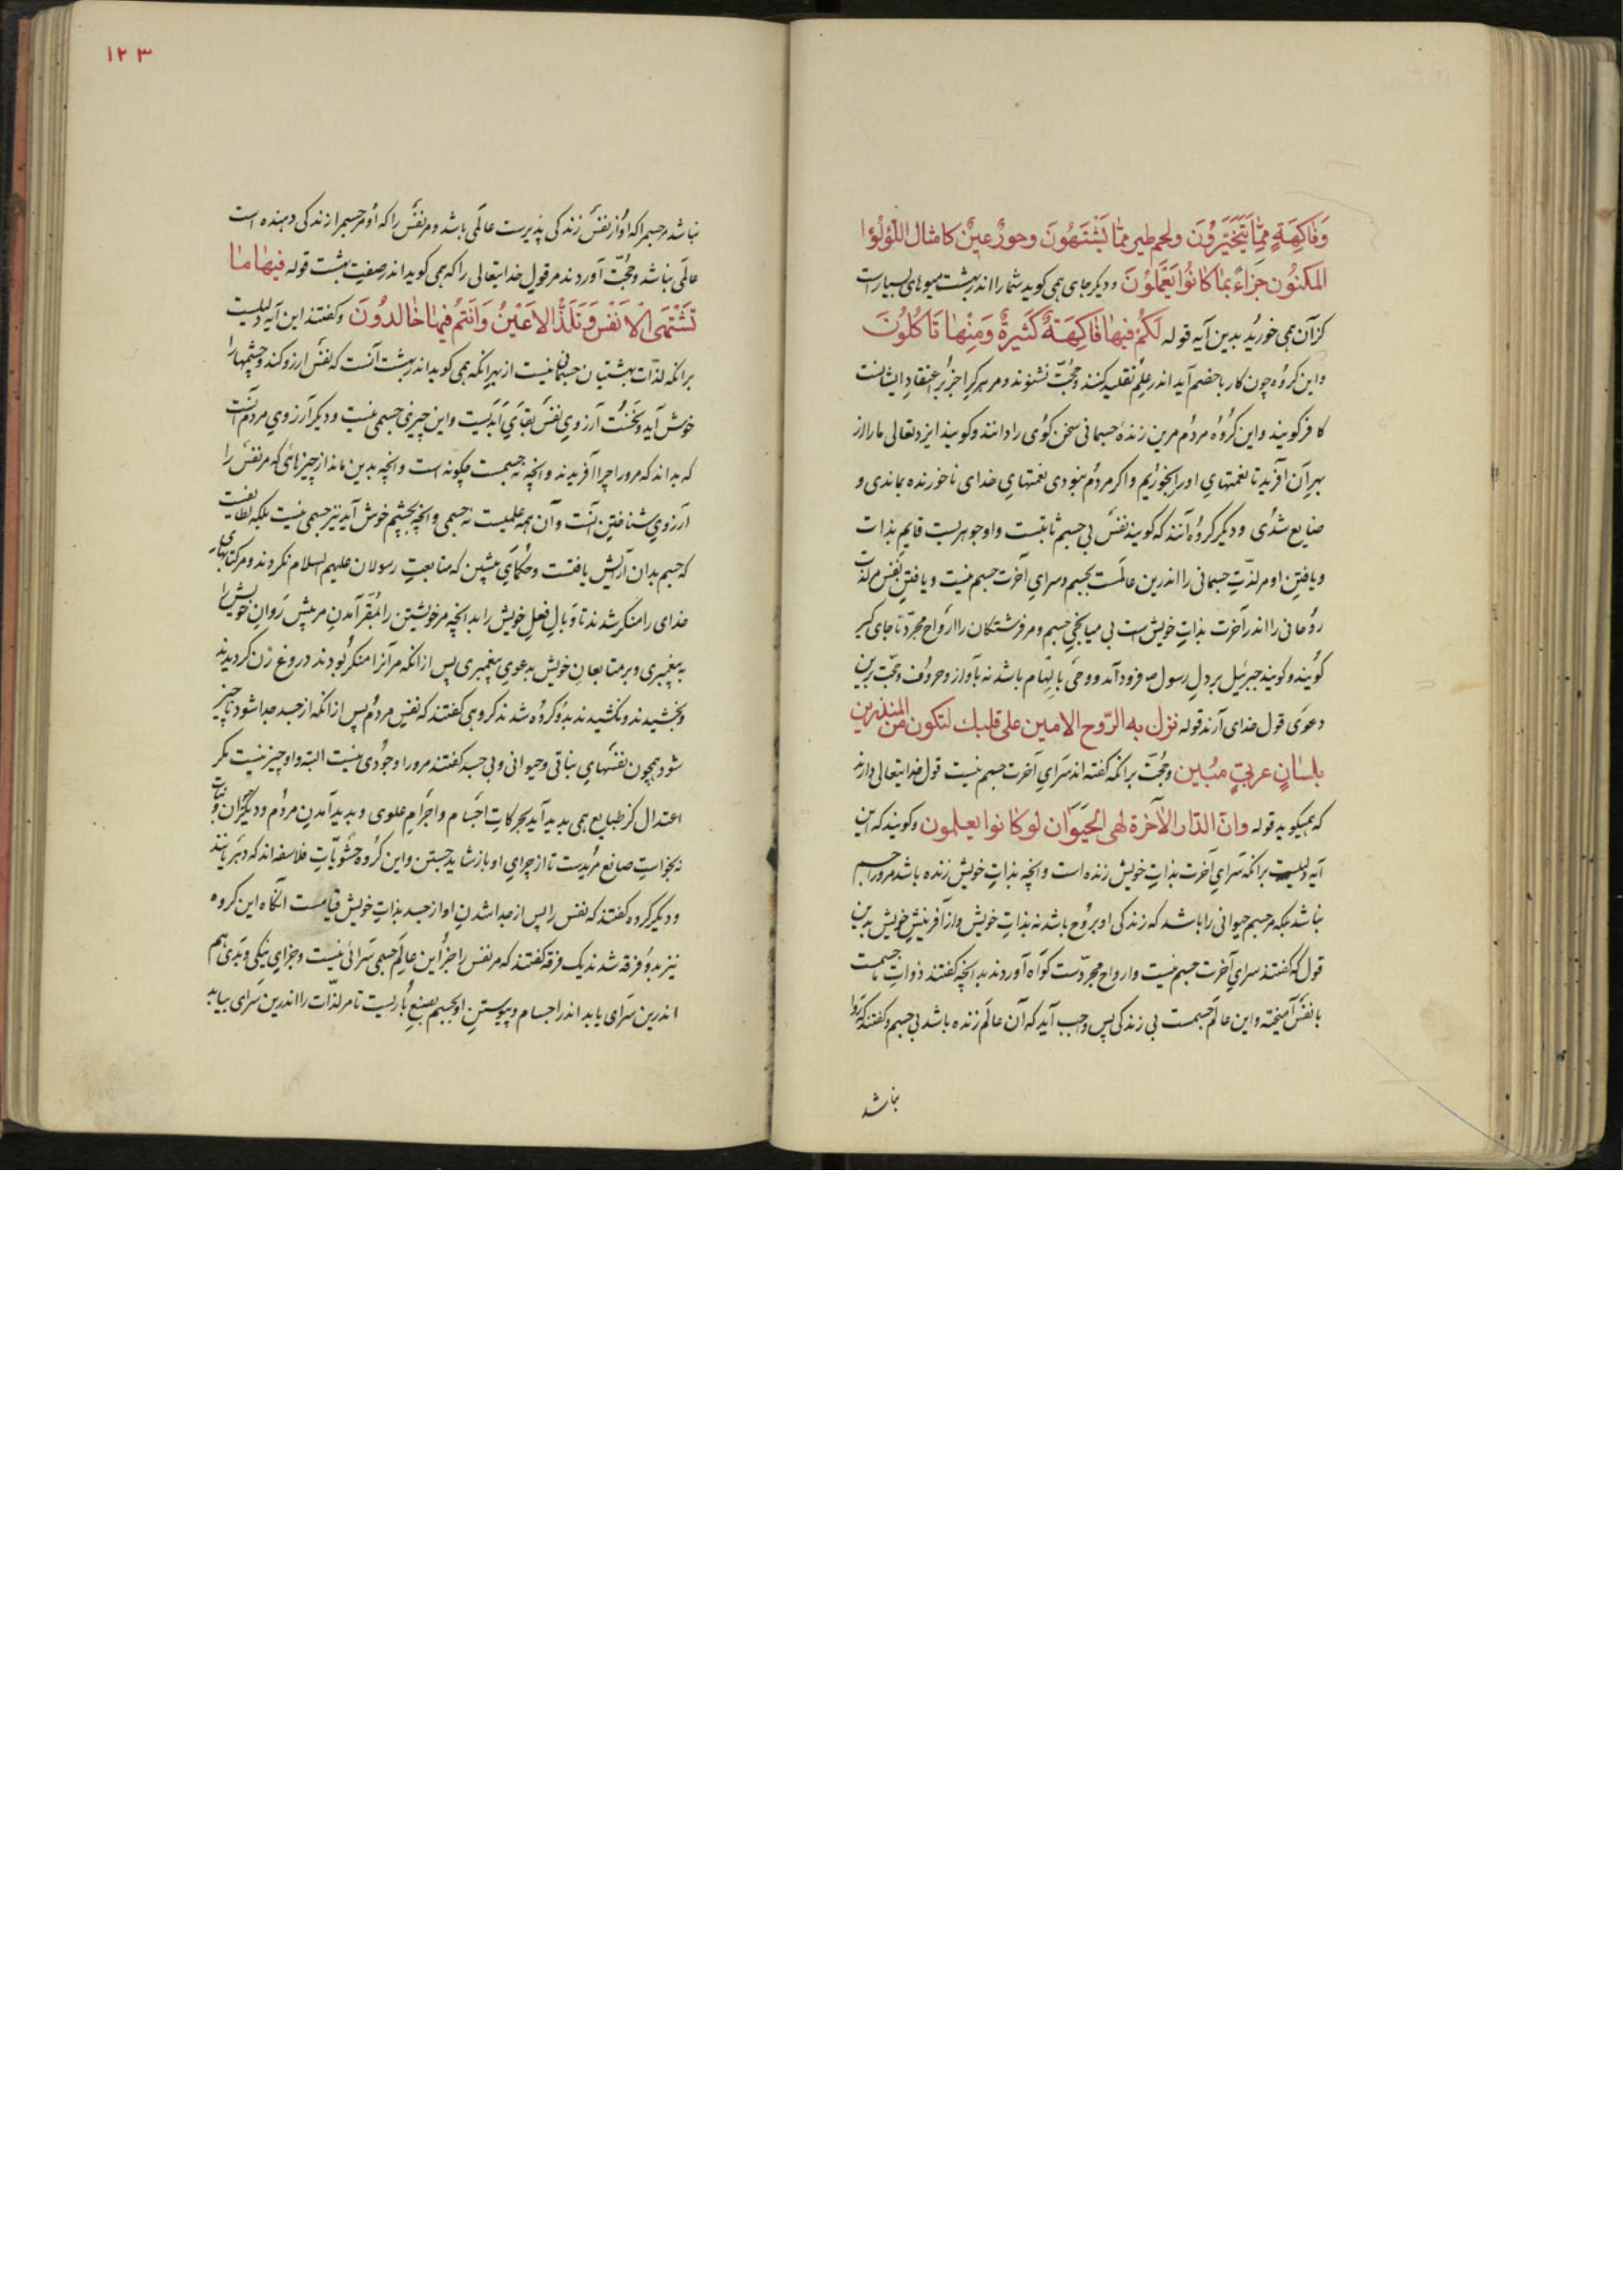 وَفَاكِهَةٍ مِمَّا يَتَخَيَّرُونَ ولحم طير ممّا يَشْتَهُونَ وحورٌ عينٌ كامثال اللؤلؤا
المكنُون جَزاءً بمَا كانُوا يَعْمَلُونَ و دیکر جای همی کوید شما را اندر بهشت میوهای بسیارست
کز آن همی خورید بدین آیه قوله لَكُمْ فيهَا فَاكِهَةٌ كَثيرةٌ وَمِنْهَا تَاكُلُونَ
واین کروه چون کار با خصم آید اندر علم تقلید کنند و حجّت نشنوند و مر هرکرا جز بر اعتقاد ایشانست
کافر کویند واین کروه مردم مرین زندهٔ جسمانی سخن کوی را دانند و کویند ایزد تعالی ما را از
بهر آن آفرید تا نعمتهای او را بخوریم و اکر مردم نبودی نعمتهای خدای ناخورنده بماندی و
ضایع شدی و دیکر کروه آنند که کویند نفس بی جسم ثابتست و او جوهریست قایم بذات
و یافتن او مر لذّت جسمانی را اندرین عالمست بجسم و سرای آخرت جسم نیست و یافتن نفس مر لذّت
روحانی را اندر آخرت بذات خویش است بی میانجی جسم و مر فرشتکان را ارواح مجرّد نا جای کیر
کویند و کویند جبرئیل بر دل رسول ص فرود آمد و وحی بالهام باشد نه بآواز و حروف و حجّت برین
دعوی قول خدای آرند قوله نزل به الرّوح الامين على قلبك لتكون من المنذرين
بلسانٍ عربيٍّ مبُين و حُجّت برانکه کفته اند سرای آخرت جسم نیست قول خدایتعالی دارند
که همیکوید قوله وانّ الدّار الآخرة لهى الحَيَوَان لو كانوا يعلمون و کویند که این
آیه دلیلست برانکه سرای آخرت بذات خویش زنده است و آنچه بذات خویش زنده باشد مرورا جسم
نباشد بلکه مر جسم حیوانی را باشد که زندکی او بروح باشد نه بذات خویش و از آفرینش خویش بدین
قول که کفتند سرای آخرت جسم نیست و ارواح مجرّدست کواه آوردند بدانچه کفتند ذوات جسمست
با نفس آمیخته واین عالم جسمست بی زندکی پس واجب آید که آن عالم زنده باشد بی جسم و کفتند که روا
نباشد
١٢٣
نباشد مر جسم را که او از نفس زندکی پذیرست عالمی باشد و مر نفس را که او مر جسم را زندکی دهنده است
عالمی نباشد و حجّت آوردند مر قول خدایتعالی را که همی کوید اندر صفت بهشت قوله فيهَا مَا
تَشْتَهَى الاَنفس وَتَلَذُّ الاَعْيُنُ وَاَنتم فيهَا خَالدُونَ و کفتند این آیه دلیلست
برانکه لذّات بهشتیان جسمانی نیست از بهر انکه همی کوید اندر بهشت آنست که نفس آرزو کند و چشمها را
خوش آید و نخست آرزوی نفس بقای ابدیست واین چیزی جسمی نیست و دیکر آرزوی مردم آنست
که بداند که مرورا چرا آفریدند و آنچه نه جسمست چکونه است و آنچه بدین ماند از چیزهائی که مر نفس را
آرزوی شناختن آنست و آن همه علمیست نه جسمی و آنچه بچشم خوش آید نیز جسمی نیست بلکه لطایفیست
که جسم بدان آرایش یافتست و حکمای پیشین که متابعت رسولان علیهم السلام نکردند و مر کتابهای
خدای را منکر شدند تا وبال فعل خویش را بدانچه مر خویشتن را مقر آمدن مر پیش روان خویش را
به پیغمبری و بر متابعان خویش بدعوی پیغمبری پس از انکه مر آنرا منکر بودند دروغ زن کردیدند
و بخشیدند و نکشیدند بدو کروه شدند کروهی کفتند که نفس مردم پس از انکه از جسد جدا شود ناچیز
شود همچون نفسهای نباتی و حیوانی و بی جسد کفتند مرورا وجودی نیست البته و او چیز نیست مکر
اعتدال کز طبایع همی پدید آید بحرکات اجسام و اجرام علوی و پدید آمدن مردم و دیکر حیوان و نبات
نه بخواست صانع مریدست تا از چرای او باز شاید جستن واین کروه حشویّات فلاسفه اند که دهریانند
و دیکر کروه کفتند که نفس را پس از جدا شدن او از جسد بذات خویش قیامست آنکاه این کروه
نیز بدو فرقه شدند یک فرقه کفتند که مر نفس را جز این عالم جسمی سرائی نیست و جزای نیکی و بدی هم
اندرین سرای یابد اندر اجسام و پیوستن او بجسم بصنع باریست تا مر لذّات را اندرین سرای بیابد